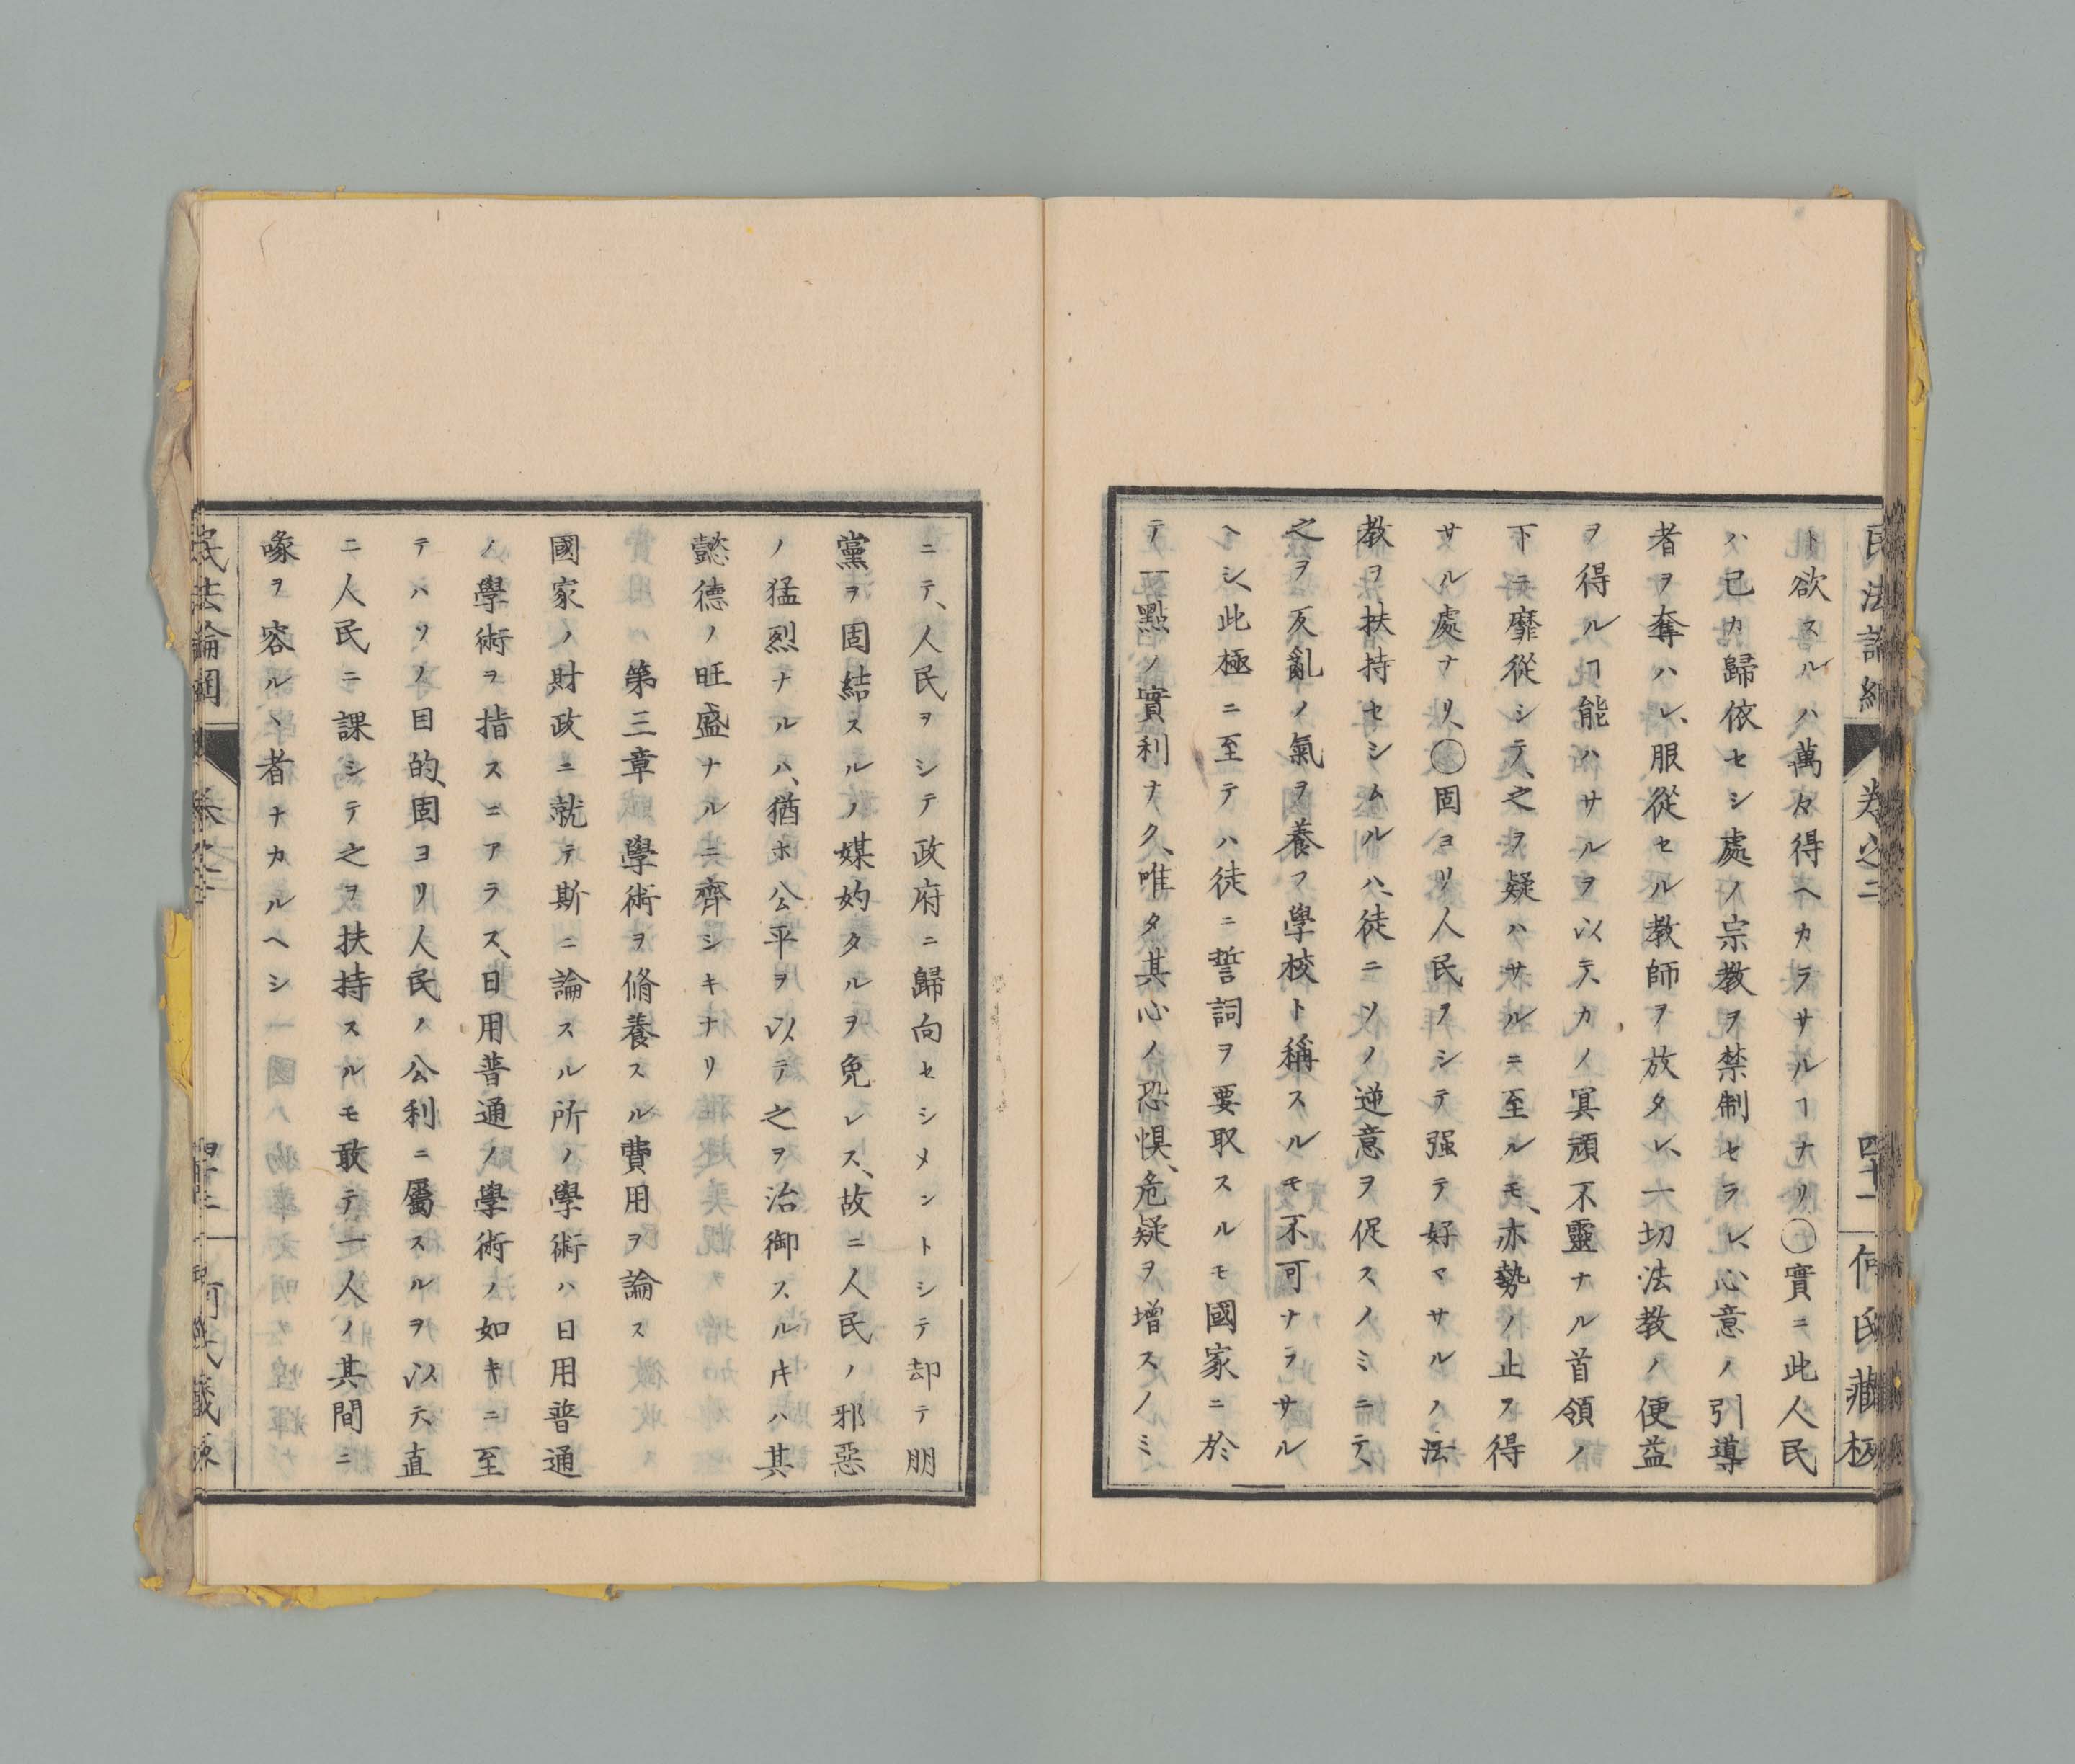 民法論綱 卷之二 四十一 何氏藏板
ト欲スルハ萬々得ヘカラサルヿナリ○實ニ此人民
ハ己カ歸依セシ處ノ宗教ヲ禁制セラレ、心意ノ引導
者ヲ奪ハレ、服從セル教師ヲ放タレ、一切法教ノ便益
ヲ得ルヿ能ハサルヲ以テ、カノ冥頑不靈ナル首領ノ
下ニ靡從シテ、之ヲ疑ハサルニ至ルモ、亦勢ノ止ヲ得
サル處ナリ、○固ヨリ人民ヲシテ强テ好マサルノ法
教ヲ扶持セシムルハ、徒ニソノ逆意ヲ促スノミニテ、
之ヲ反亂ノ氣ヲ養フ學校ト稱スルモ不可ナラサル
ヘシ、此極ニ至テハ徒ニ誓詞ヲ要取スルモ國家ニ於
テ一點ノ實利ナク、唯タ其心ノ恐惧、危疑ヲ增スノミ
ニテ、人民ヲシテ政府ニ歸向セシメントシテ却テ朋
黨ヲ固結スルノ媒妁タルヲ免レス、故ニ人民ノ邪惡
ノ猛烈ナルハ、猶ホ公平ヲ以テ之ヲ治御スルキハ其
懿德ノ旺盛ナルニ齊シキナリ
第三章 學術ヲ脩養スル費用ヲ論ス
國家ノ財政ニ就テ斯ニ論スル所ノ學術ハ日用普通
ノ學術ヲ指スニアラス、日用普通ノ學術ノ如キニ至
テハソノ目的、固ヨリ人民ノ公利ニ屬スルヲ以テ、直
ニ人民ニ課シテ之ヲ扶持スルモ敢テ一人ノ其間ニ
喙ヲ容ルヽ者ナカルヘシ
民法論綱